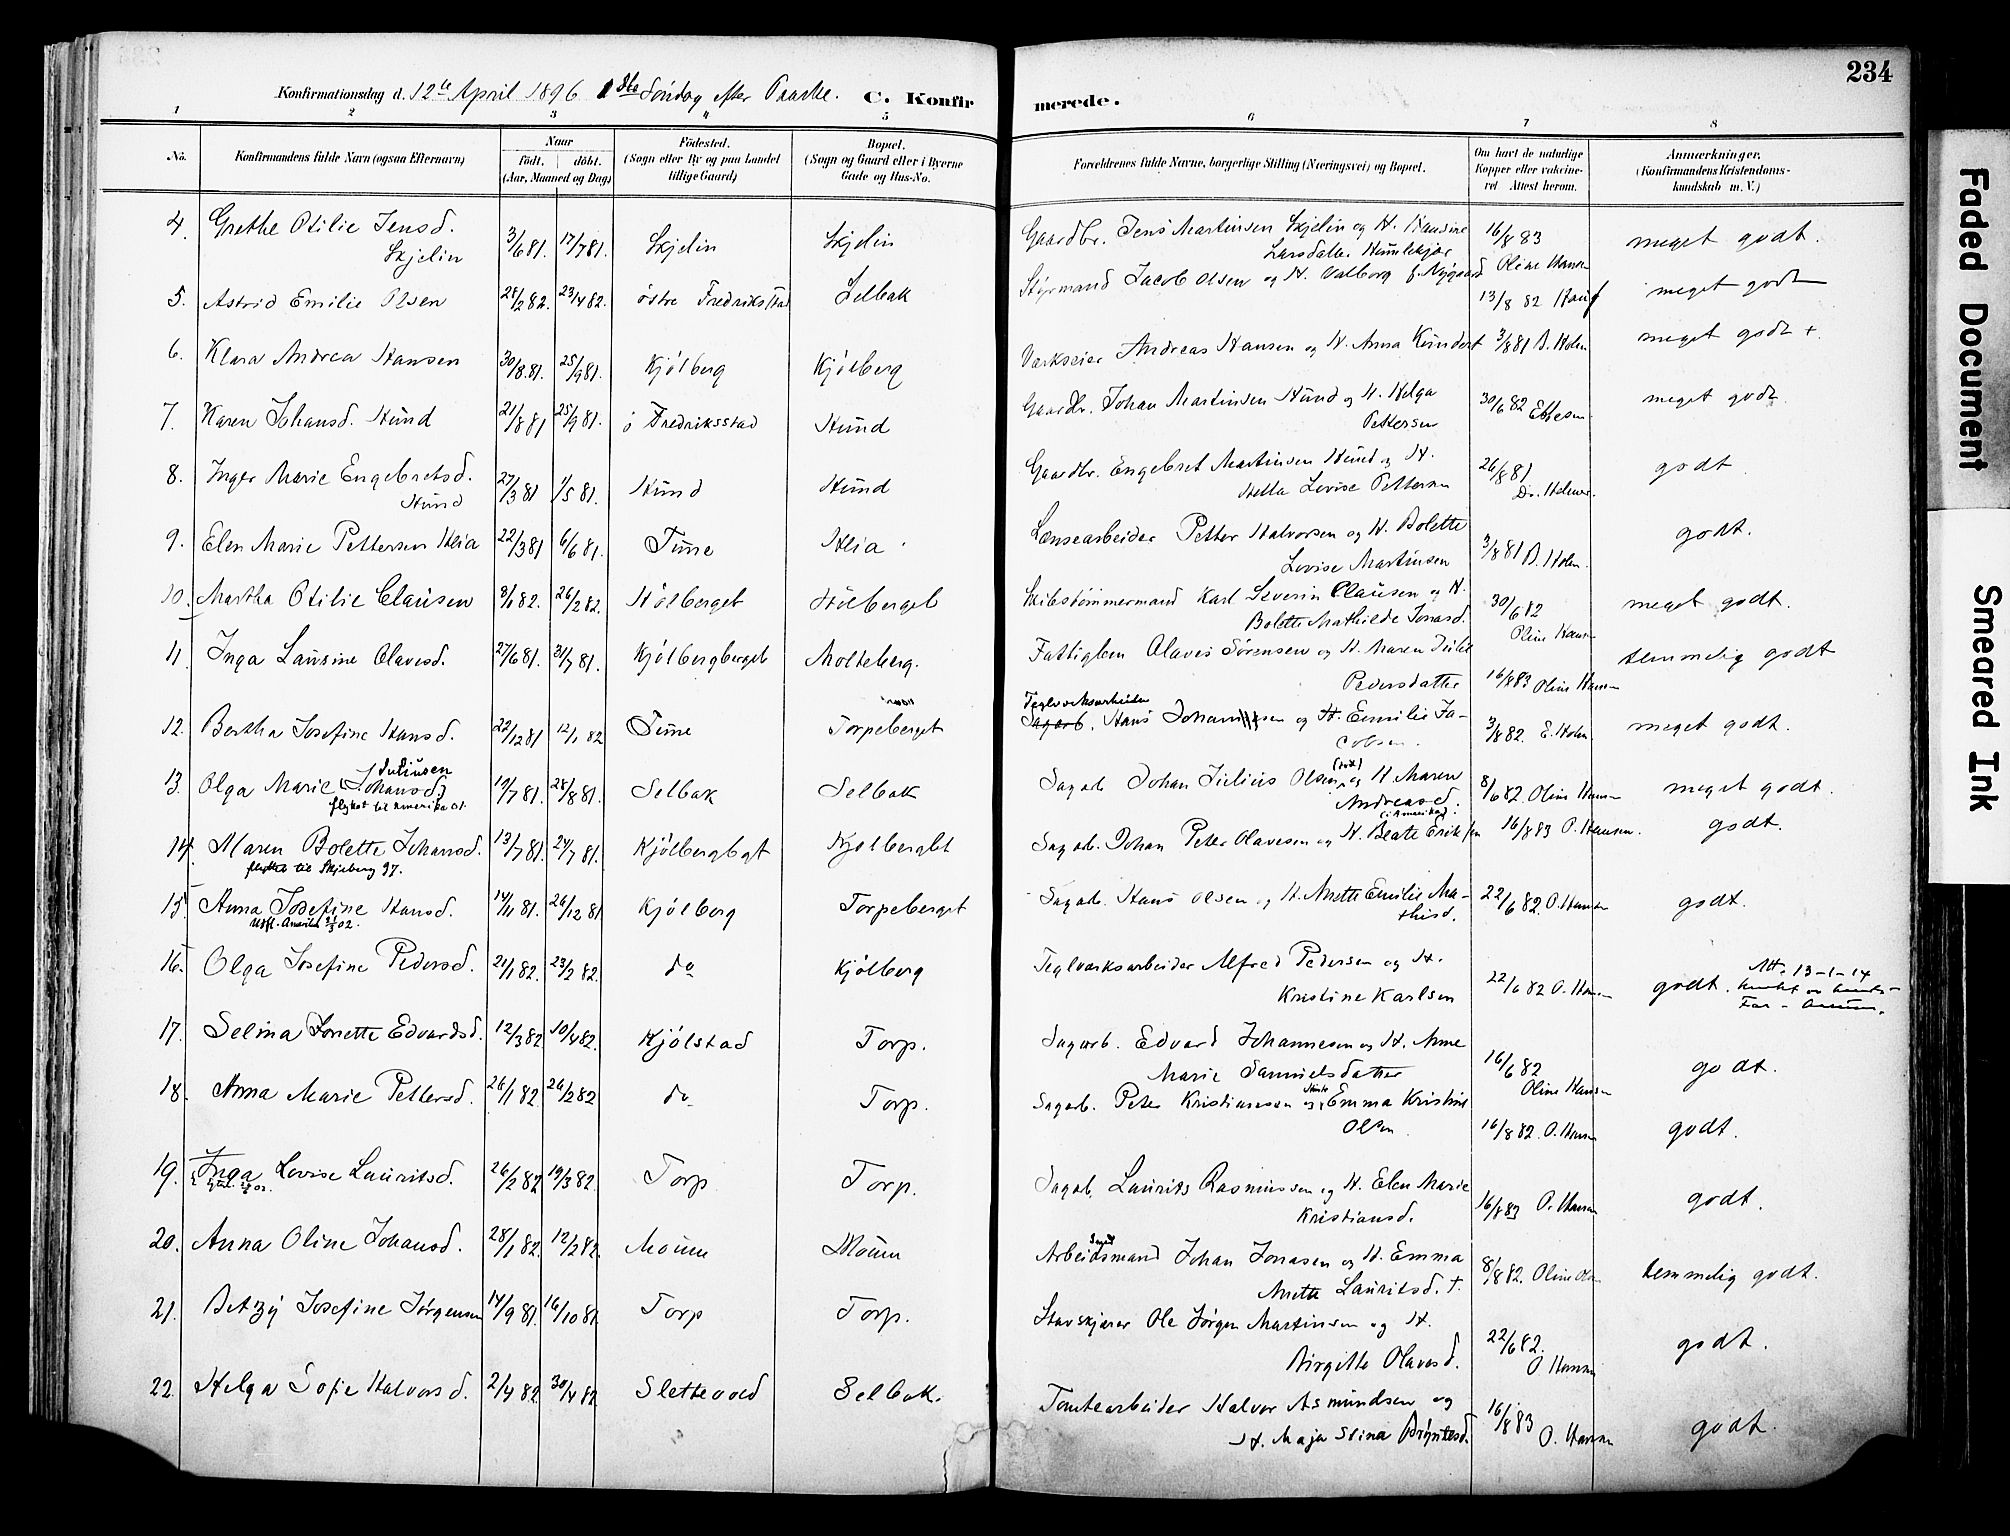 234
Konfirmationsdag d. 12te April 1896 1ste Söndag efter Paaske. C. Konfirmerede.
1 2 3 4 5 6 7 8
No. Konfirmandens fulde Navn (ogsaa Efternavn) Naar födt. döbt. (Aar, Maaned og Dag) Födested. (Sogn eller By og paa Landet tillige Gaard) Bopæl. (Sogn og Gaard eller i Byerne Gade og Hus-No. Forældrenes fulde Navne, borgerlige Stilling (Næringsvei) og Bopæl. Om havt de naturlige Kopper eller vakcineret Attest herom. Anmærkninger. (Konfirmandens Kristendomskundskab m. V.)
4. Grethe Otilie Jensd. 3/6 81. 17/7 81. Skjelin Skjelin Gaardbr. Jens Martinsen Skjelin og H. Hansine 16/8 83 meget godt.
Skjelin Larsdatter Humlekjær Oline Hansen
5. Astrid Emilie Olsen 28/2 82. 23/4 82. östre Fredriksstad Selbak Styrmand Jacob Olsen og H. Valborg f. Nygaard 13/8 82 meget godt
6. Klara Andrea Hansen 30/8 81. 25/9 81. Kjölberg Kjölberg Værkseier Andreas Hansen og H. Anna 3/8 81 A. Holm meget godt +
7. Karen Johansd. Hund 21/8 81 25/9 81. ö Fredriksstad Hund Gaardbr. Johan Martinsen Hund og H. Helga 30/6 82 meget godt.
Pettersen
8. Inger Marie Engebretsd. 27/3 81 1/5 81. Hund Hund Gaardbr. Engebret Martinsen Hund og H. 26/8 81 godt
Hund Hella Lovise Pettersen
9. Elen Marie Pettersen Hlia 22/3 81 6/6 81. Tune Hlia Lænsearbeider Petter Halvorsen og H. Bolette 3/8 81 A. Holm. godt.
Lovise Martinsen
10. Martha Otilie Clausen 8/1 82. 26/2 82. Hölberget Hölberget Skibstömmermand Karl Severin Clausen og H. 30/6 82 meget godt.
Bolette Mathilde Jonasd. Oline Hansen
11. Inga Laurine Olavesd. 27/6 81. 31/7 81. Kjölbergberget Molteberg. Fattiglem Olaves Sörensen og H. Maren temmelig godt
Pedersdatter 16/8 83 Oline Hansen
12. Bertha Josefine Hansd. 22/12 81 12/1 82 Tune Torpeberget Teglverksarbeider Sagarb. Hans Johansen og H. Emilie Ja- 3/8 82. E. Holm meget godt.
cobsen.
13. Olga Marie (Johansd.) Juliusen 19/7 81. 28/8 81. Selbak Selbak Sagarb Johan Julius Olsen (död) og H. Maren 8/6 82. Oline Hansen meget godt.
flyttet til Amerika Andreasd. (i Amerika)
14. Maren Bolette Johansd. 13/7 81. 24/7 81. Kjölbergbgt Kjölbergbt Sagarb. Johan Peter Olavesen og H. Beate Eriksen 16/8 83 O. Hansen. godt.
flyttet til Skjeberg 97.
15. Anna Josefine Hansd. 14/11 81. 26/12 81 Kjölberg Torpeberget Sagarb. Hans Olsen og H. Anette Emilie Ma- 22/6 82. O. Hansen godt.
Utfl. Amerika 02. thisd.
16. Olga Josefine Pedersd. 21/1 82. 23/2 82. do Kjölberg Teglværksarbeider Alfred Pedersen og H. 22/6 82 O. Hansen godt. Att. 13-1-14
Kristine Karlsen
17. Selma Jonette Edvardsd. 12/3 82 10/4 82. Kjölstad Torp. Sagarb. Edvard Johannesen og H. Anne 16/6 82 godt.
Marie Samuelsdatter Oline Hansen
18. Anna Marie Pettersd. 26/1 82. 26/2 82 do Torp. Sagarb. Peter Kristiansen og Emma Kristine 16/8 82 O. Hansen godt.
Olsen
19. Inga Lovise Lauritsd. 26/2 82 19/3 82. Torp Torp. Sagarb. Laurits Rasmussen og H. Elen Marie 16/8 83 O. Hansen godt.
Kristiansd.
20. Anna Oline Johansd. 28/1 82. 12/2 82. Moum Moum Arbeidsmand Johan Jonasen og H. Emma 8/8 82. Oline temmelig godt.
Anette Lauritsd. †.
21. Betzy Josefine Jörgensen 14/9 81. 16/10 81. Torp Torp. Stavskjærer Ole Jörgen Martinsen og H. 22/6 82. godt.
Birgitte Olavesd. O Hansen
22. Helga Sofie Halvorsd. 2/4 82 30/4 82 Slettevold Selbak. Tomtearbeider Halvor Asmundsen og 16/8 83 godt.
H. Maja Stina O. Hansen
Faded Document
Smeared Ink